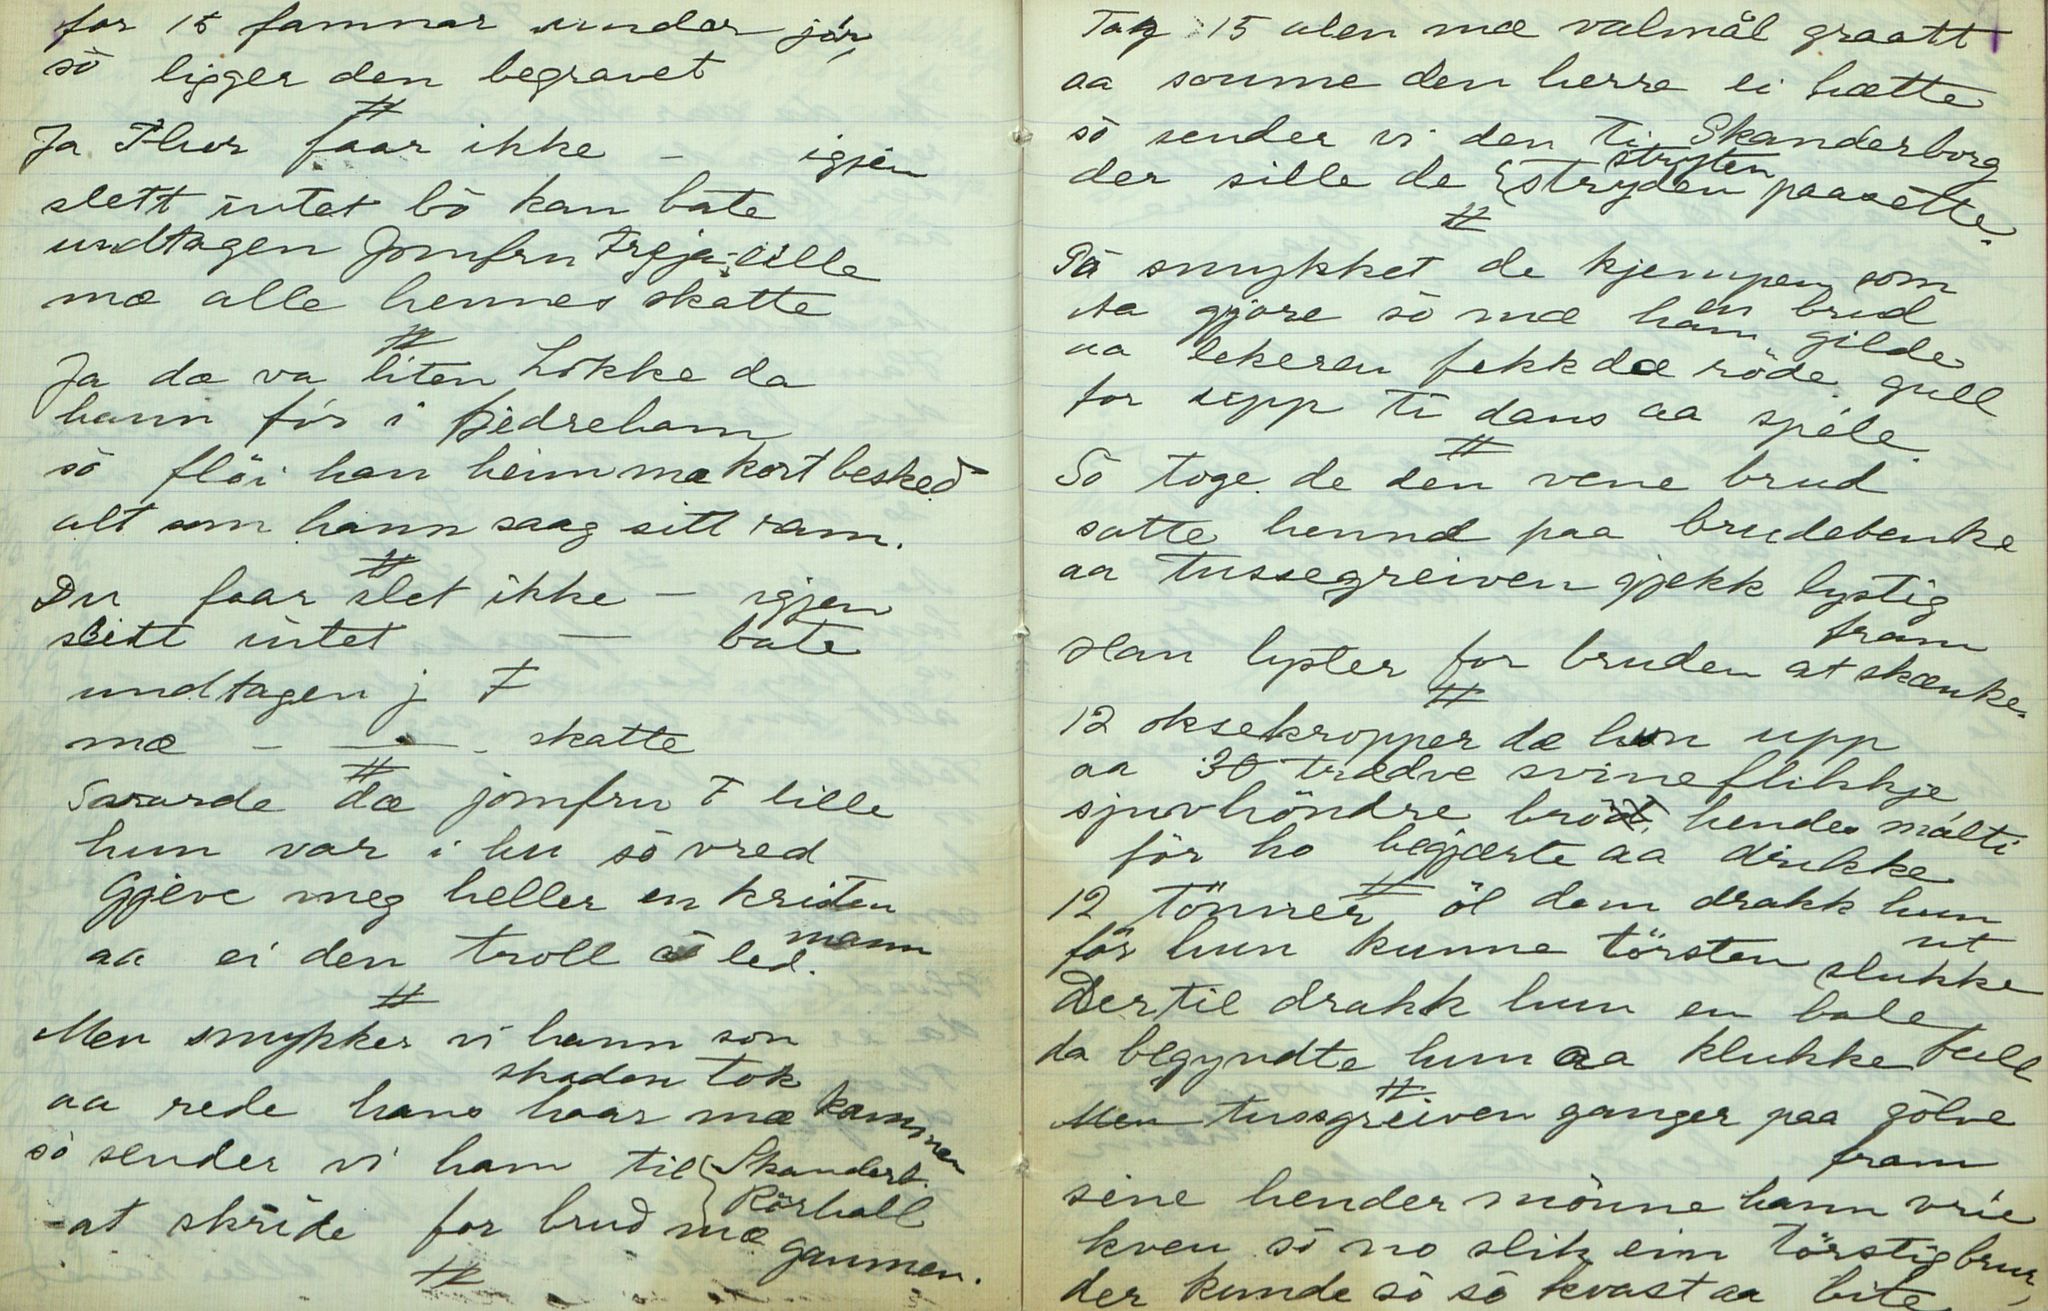 for 15 famnar under jór,
sò ligger den begravet
#
Ja Thor faar ikke – igjen
slett intet bò kan bate
undtagen Jomfru Frøja lille
mæ alle hennes skatte
#
Ja dæ va liten Lokke da
hann fór i fjedreham
sò flöi han heim mæ kort besked
alt som hann saag sitt ram.
#
Du faar slet ikke – igjen
slitt intet — bate
undtagen j F
mæ – — - skatte
#
Svarde dæ jomfru F lille
hun var i hu sò vred
Gjeve meg heller en kristen
mann
aa ei den troll sò led.
#
Men smykker vi hann son
skaden tok
aa rede hans haar mæ kammen
sò sender vi ham til { Skanderb.
Rörhall
-at skride for brud mæ gaumen.
#
Tag 15 alen mæ valmål graatt
aa soume den herre ei hætte
sò sender vi den ti Skanderborg
stryten
der sille de { stryden paasette.
#
Då smykket de kjempen som
en brud
Aa gjore sò mæ ham gilde
aa lekeren fekk dæ röde gull
for upp ti dans aa spéle
#
Sò toge de den vene brud
satte hennæ paa brudebenke
aa tussegreiven gjekk lystig
fram
Han lyster for bruden at skænke.
#
12 oksekropper dæ hun upp
aa 30 trædve svineflikkje
sjuvhöndre bröd hendes målti
för ho begjærte aa drikke
#
12 tönner öl dem drakk hun
ut
för hun kunne törsten slukke
Dertil drakk hun en bale
da begyndte hun aa klukke full
#
Men tussgreiven ganger paa gölve
fram
sine hender mònne hann vrie
kven sò no slik ein törstig brur,
der kunde sò sò kvast aa bite